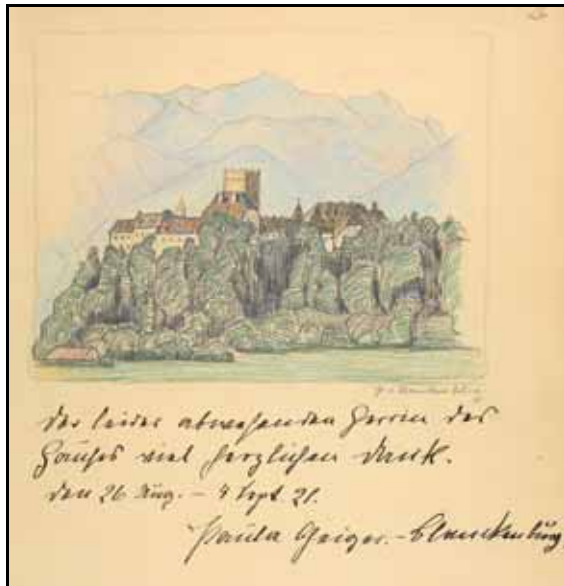 der leider abwesenden Herrin des
Hauses viel herzlichen Dank.
den 26 Aug. – 4 Sept. 21.
Paula Geiger-Blanckenburg